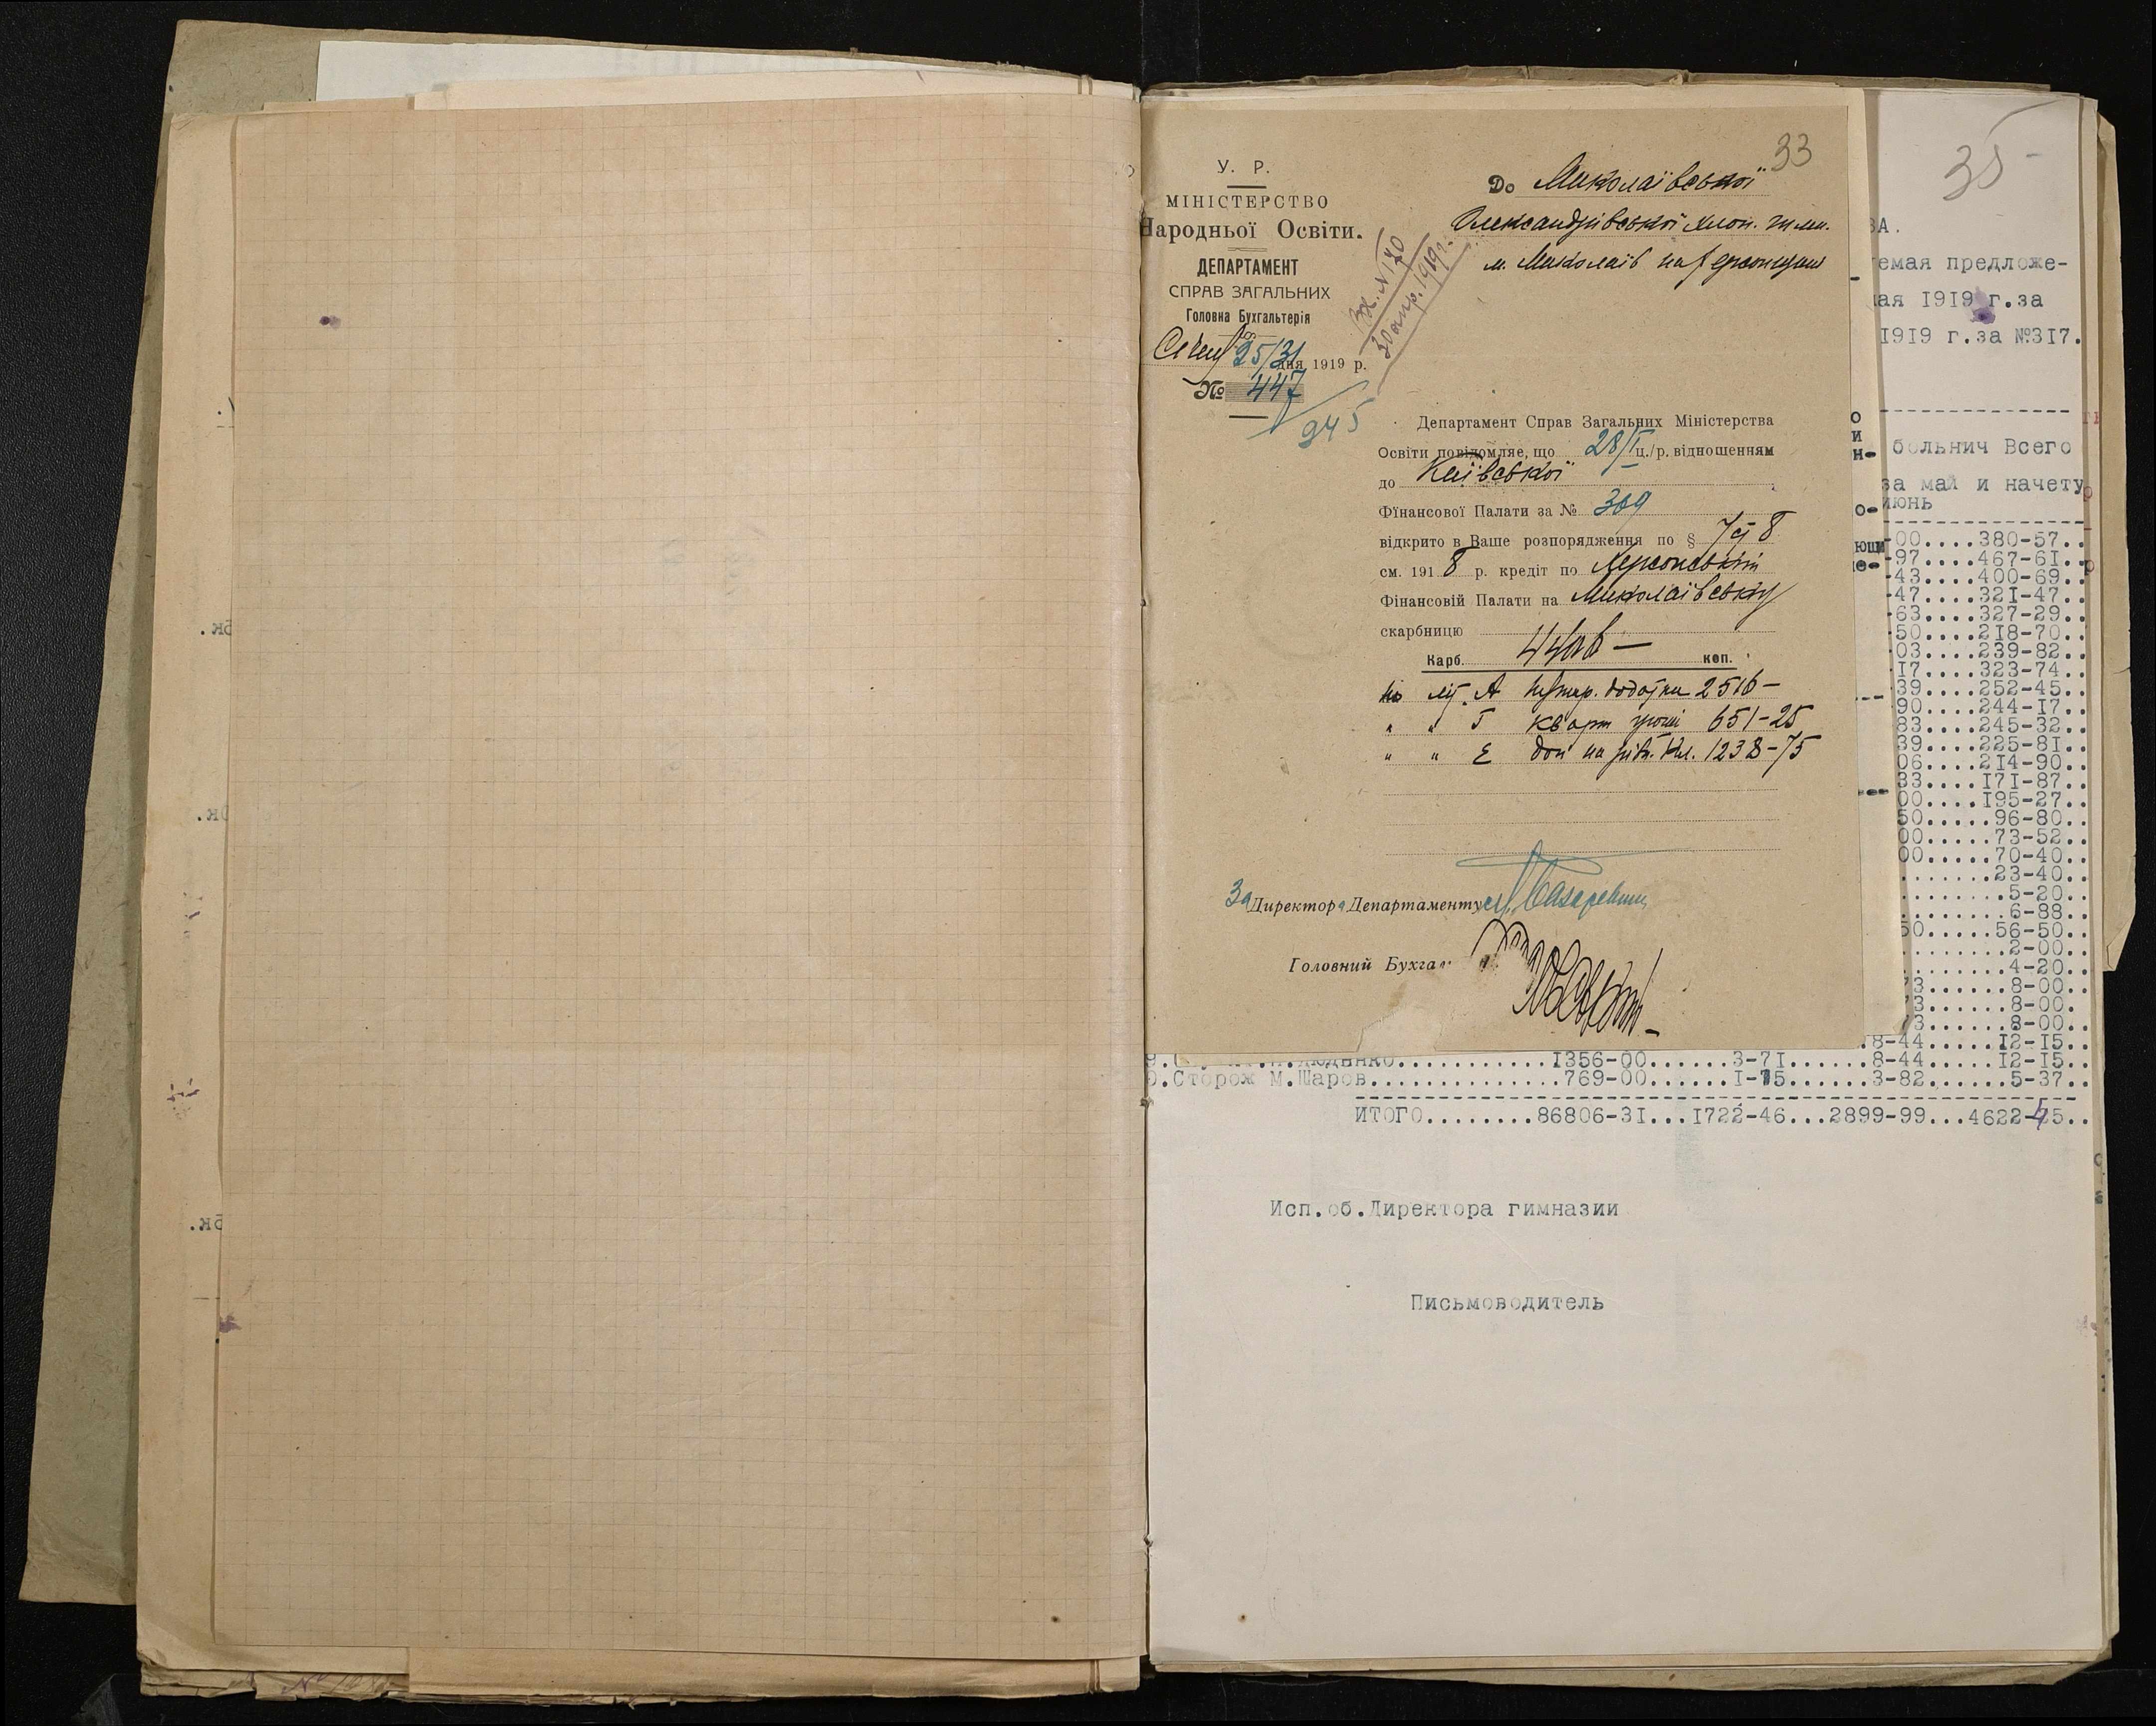 33
У. Р.
МІНІСТЕРСТВО
Народньої Освіти.
ДЕПАРТАМЕНТ
СПРАВ ЗАГАЛЬНИХ
Головна Бухгальтерія
25/31 дня 1919 р.
№ 447
945
Вх. N 170
30 апр. 1919 г.
До Миколаївської
Олександрівської хлоп. гімн.
м. Миколаїв на Херсонщині
Департамент Справ Загальних Міністерства
Освіти повідомляе, що 28/I ц./р. відношенням
до Київської
Фінансової Палати за № 309
відкрито в Ваше розпорядження по § 7 ст 8
см. 1918 р. кредіт по Херсонській
Фінансовій Палати на Миколаївську
скарбницю
Карб. 4406 — коп.
на літ. А додатки 2516 —
" " Г кварт гроші 651-25
" " Е доп на 1238-75
За Директора Департаменту
Головний Бухгал
35
ЗА.
емая предложе-
ая 1919 г.за
1919 г.за №317.
больнич Всего
за май и начету
июнь
00....380-57..
97....467-61..
43....400-69..
47....321-47..
63....327-29..
50....218-70..
03....239-82..
17....323-74..
39....252-45..
90....244-17..
83....245-32..
39....225-81..
06....214-90..
33....171-87..
00....195-27..
50.....96-80..
00.....73-52..
00.....70-40..
.......23-40..
........5-20..
........6-88..
50.....56-50..
........2-00..
........4-20..
73......8-00..
73......8-00..
73......8-00..
8-44.....12-15..
1356-00......3-71......8-44.....12-15..
Сторож М.Шаров...............769-00......1-75......3-82......5-37..
ИТОГО........86806-31...1722-46...2899-99...4622-45..
Исп.об.Директора гимназии
Письмоводитель